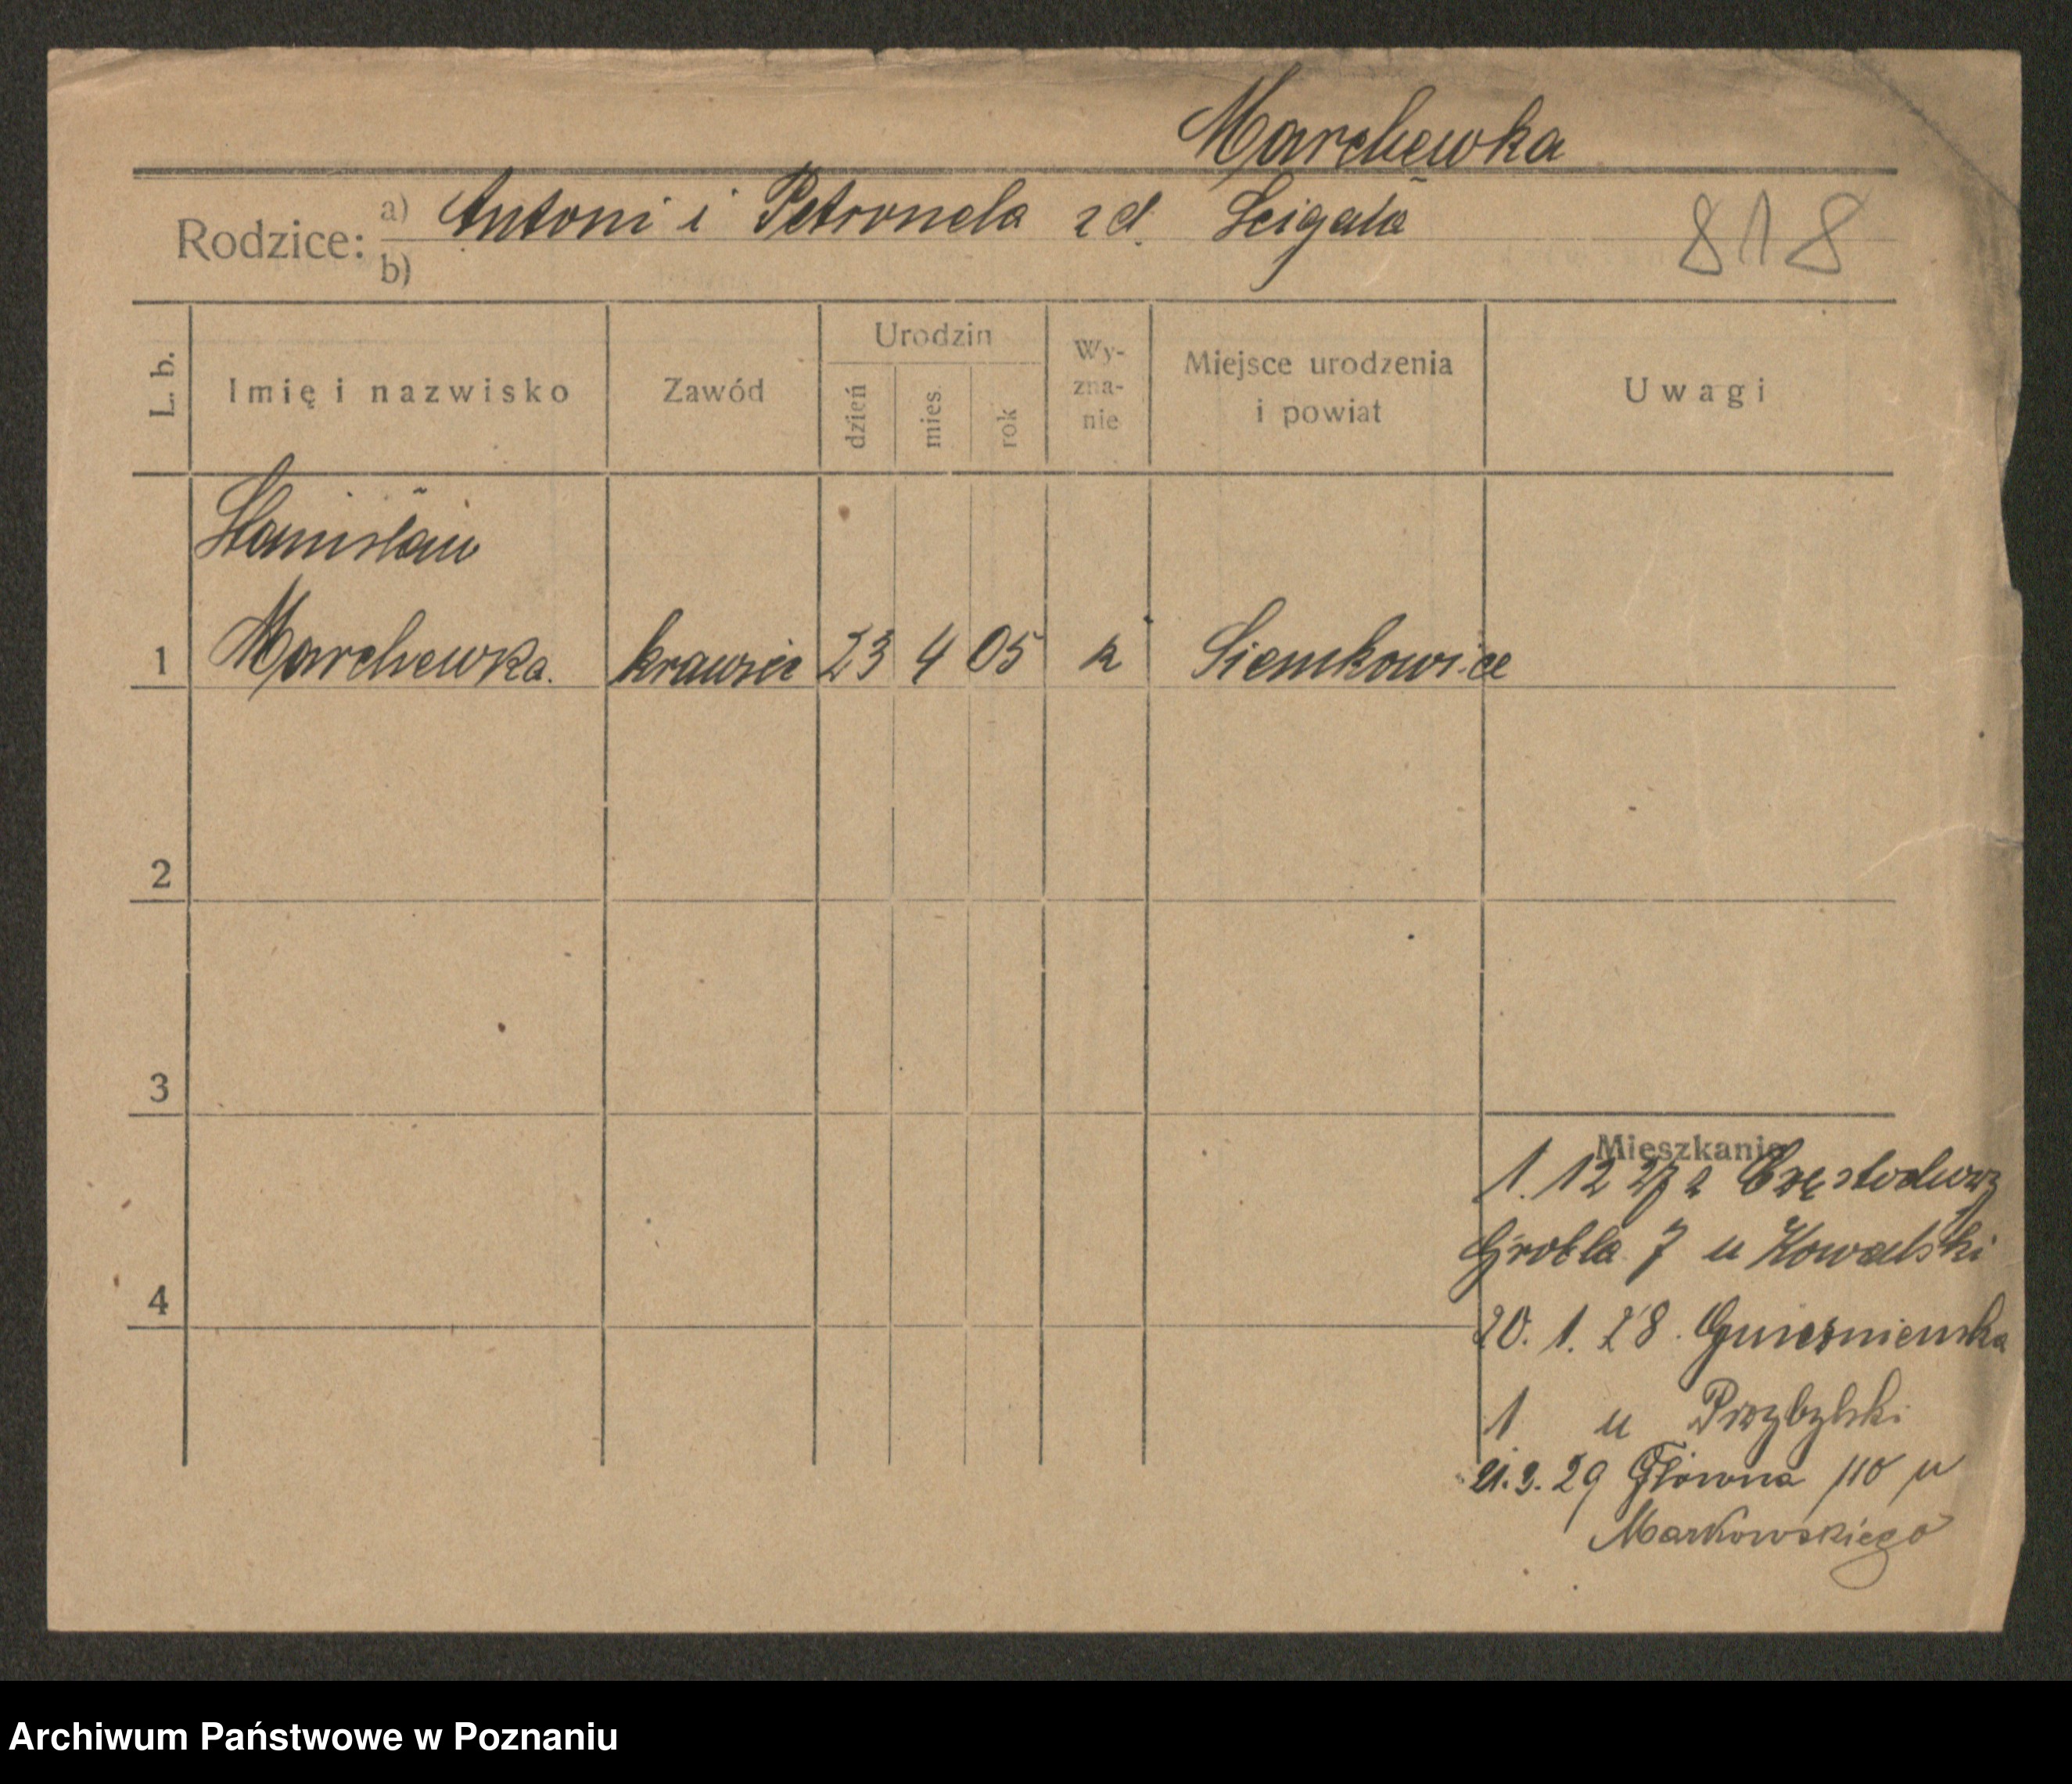 Marchewka
Rodzice: a) Antoni i Petronela z d. Ścigała
b)
818
L. b. Imię i nazwisko Zawód Urodzin dzień mies. rok Wy-zna-nie Miejsce urodzenia i powiat Uwagi
Stanisław
1 Marchewka. krawiec 23 4 05 k Siemkowice
2
3
Mieszkanie
1. 12 27 z Częstochowy
Grobla 7 u Kowalski
4
20. 1. 28. Gnieźnieńska
1 u Przybylski
21. 3. 29 Główna 110 u
Markowskiego
Archiwum Państwowe w Poznaniu